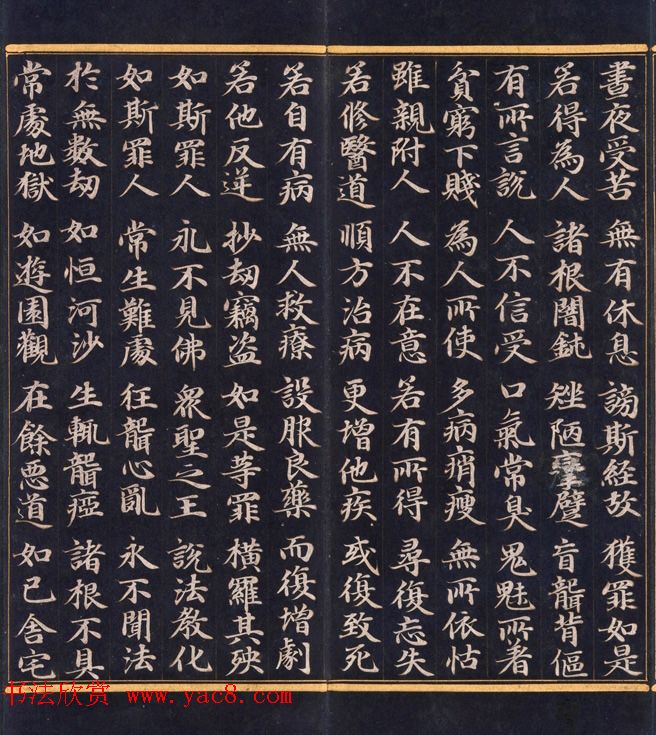 晝夜受苦 無有休息 謗斯經故 獲罪如是
若得為人 諸根闇鈍 矬陋攣躄 盲聾背傴
有所言說 人不信受 口氣常臭 鬼魅所著
貧窮下賤 為人所使 多病痟瘦 無所依怙
雖親附人 人不在意 若有所得 尋復忘失
若修醫道 順方治病 更增他疾 或復致死
若自有病 無人救療 設服良藥 而復增劇
若他反逆 抄劫竊盜 如是等罪 橫羅其殃
如斯罪人 永不見佛 眾聖之王 說法教化
如斯罪人 常生難處 狂聾心亂 永不聞法
於無數劫 如恒河沙 生輒聾瘂 諸根不具
常處地獄 如遊園觀 在餘惡道 如己舍宅
书法欣赏 www.yac8.com